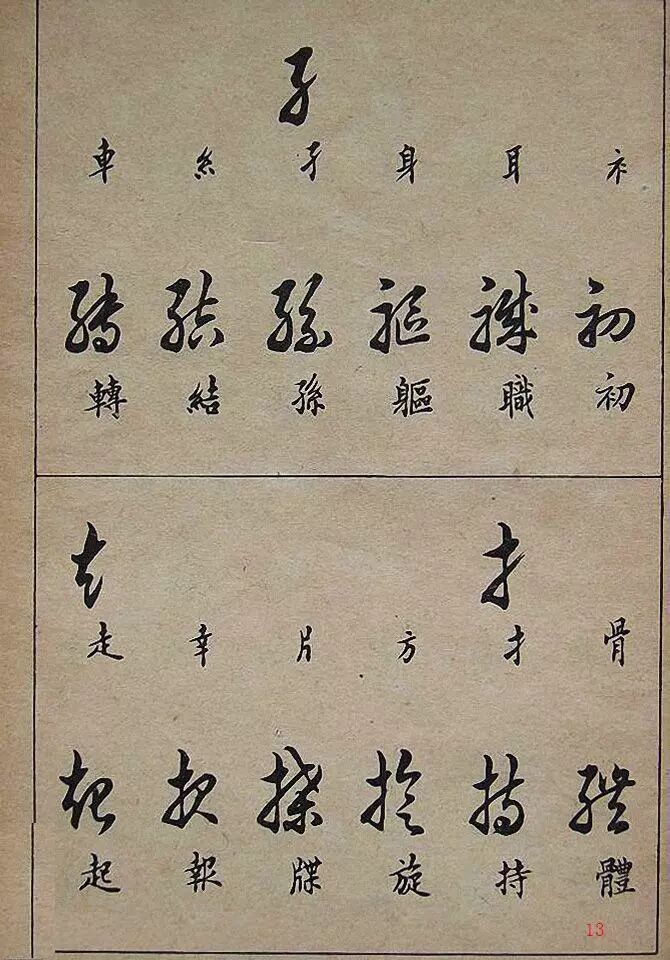 衤初初
耳職職
身軀軀
孑孑孫孫
糸結結
車轉轉
骨體體
扌扌持持
方旋旋
片牒牒
幸報報
走走起起
13